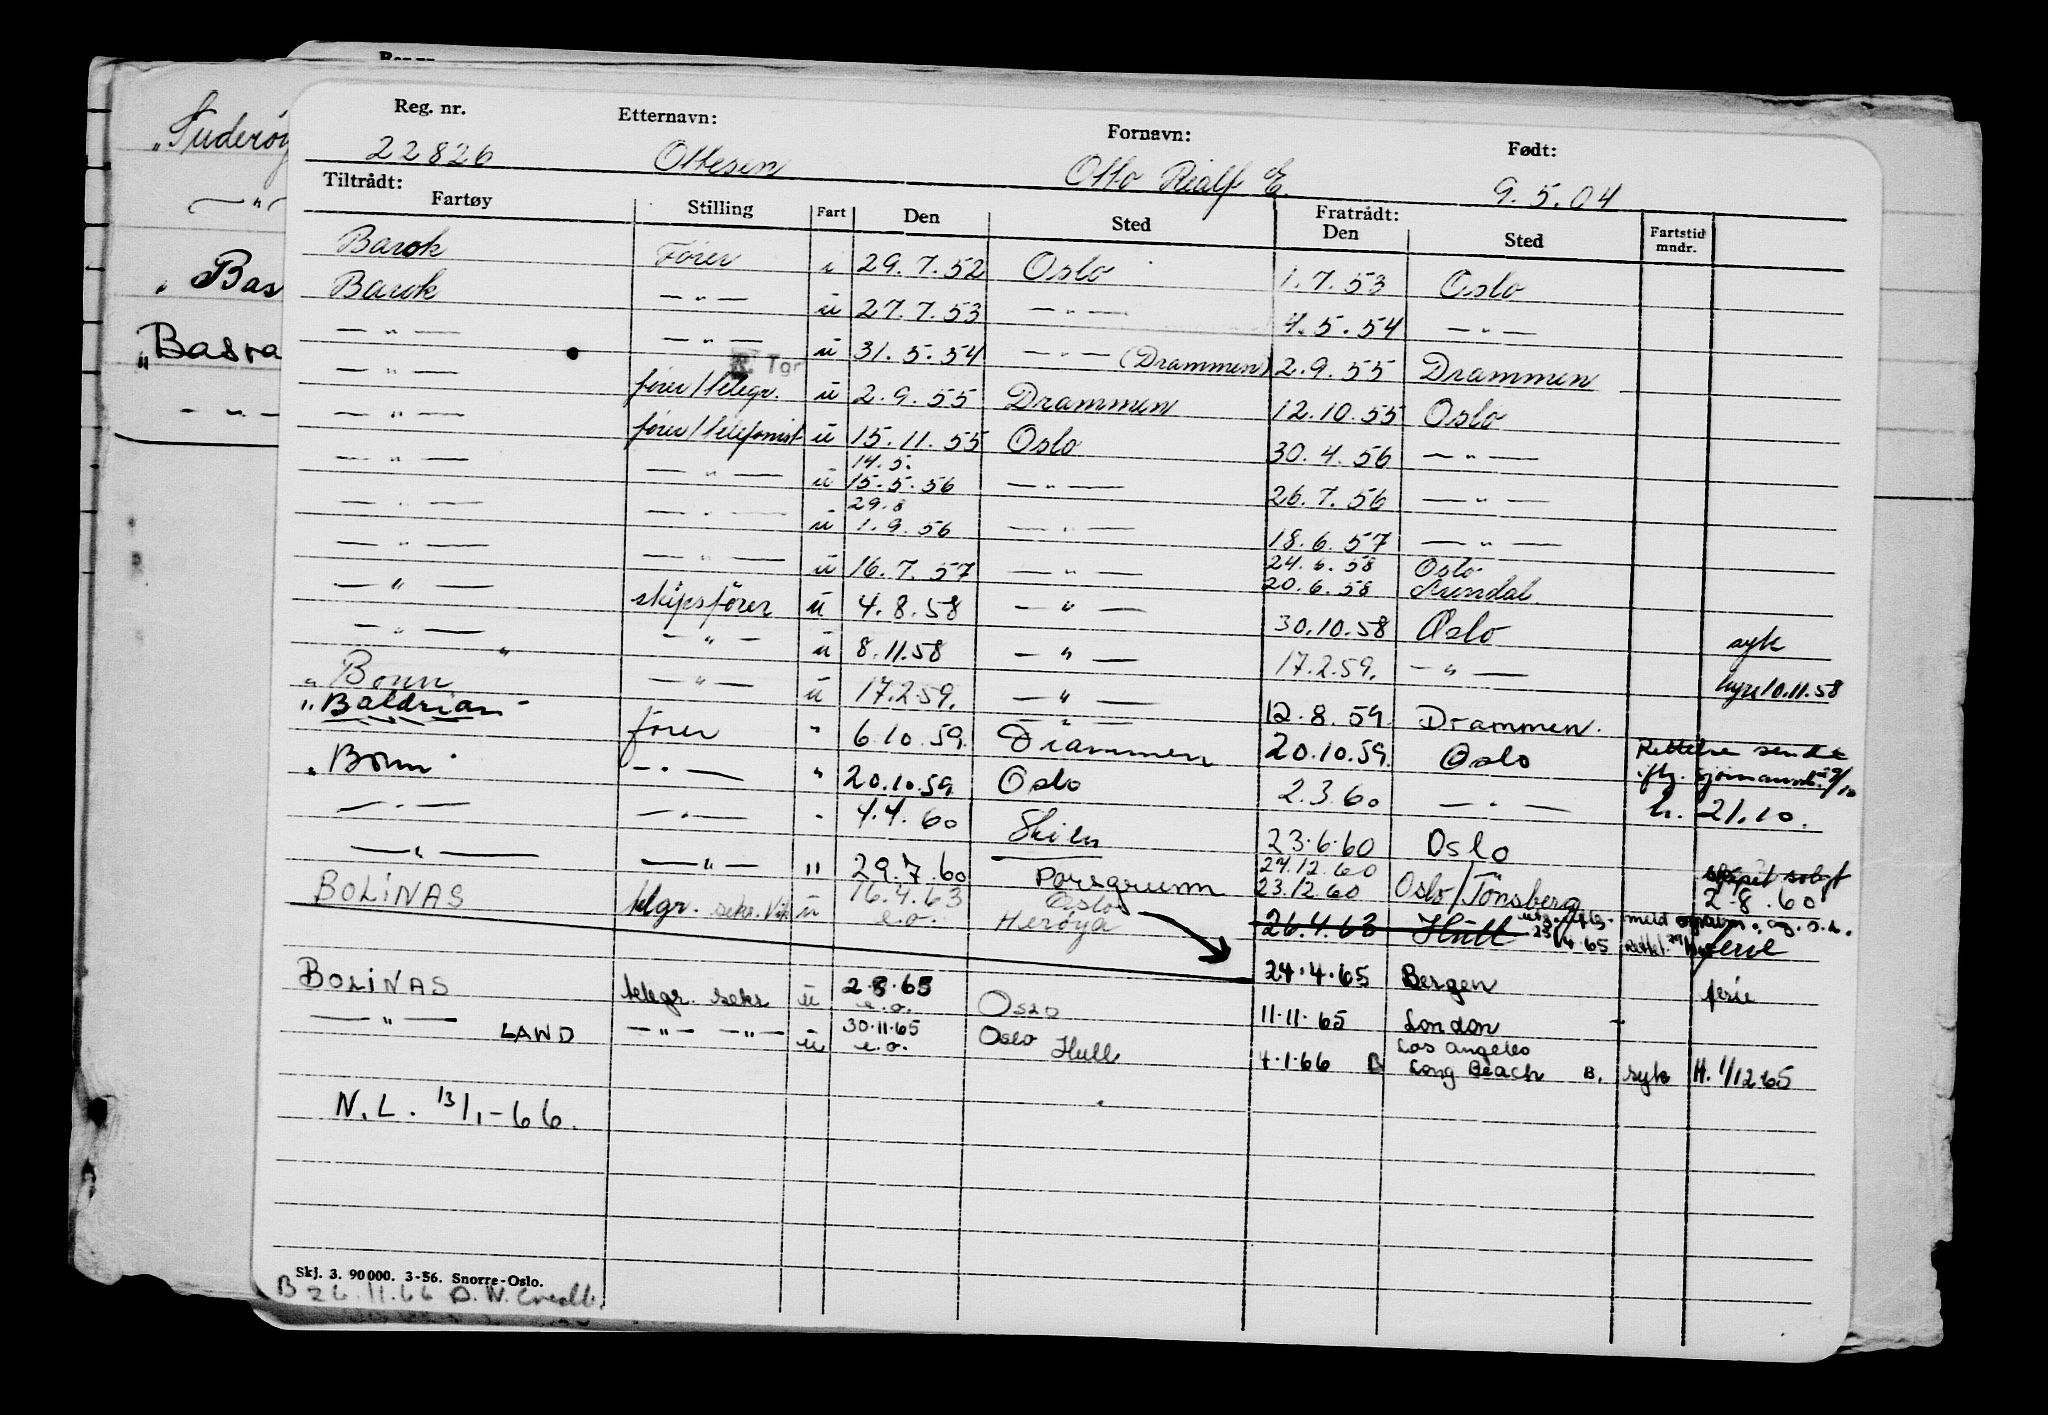 Reg. nr. Etternavn: Fornavn: Født:
22826 Ottesen Otto Rialf E. 9.5.04
Tiltrådt: Fratrådt:
Fartøy Stilling Fart Den Sted Den Sted Fartstid mndr.
Barok Fører i 29.7.52 Oslo 1.7.53 Oslo
Barok — " — u 27.7.53 — " — 4.5.54 — " —
— " — — " — u 31.5.54 — " — (Drammen) 2.9.55 Drammen
Tgr
— " — fører/telegr. u 2.9.55 Drammen 12.10.55 Oslo
— " — fører/telefonist u 15.11.55 Oslo 30.4.56 — " —
14.5.
— " — — " — u 15.5.56 — " — 26.7.56 — " —
29.8
— " — — " — u 1.9.56 — " — 18.6.57 — " —
24.6.58 Oslo
— " — — " — u 16.7.57 — " — 20.6.58 Arendal.
— " — skipsfører u 4.8.58 — " — 30.10.58 Oslo syk
— " — — " — u 8.11.58 — " — 17.2.59. — " — hyre 10.11.58
" Bonn — " — u 17.2.59. — " — 12.8.59 Drammen.
"Baldrian" fører " 6.10.59. Drammen 20.10.59. Oslo Rettelse sendt
"Bonn" — " — " 20.10.59 Oslo 2.3.60 — " — h. 21.10.
— " — — " — " 4.4.60 Skien 23.6.60 Oslo
27.12.60
— " — — " — " 29.7.60 Porsgrunn 23.12.60 Oslo/Tönsberg 2.8.60
BOLINAS tlgr. seks. u 16.4.63 Oslo
e.o. Herøya 26.4.63 Hull ferie
24.4.65 Bergen ferie
BOLINAS telegr. seks u 2.8.65 e.o. Oslo 11.11.65 London
— " — LAND — " — — " — u 30.11.65 e.o. Oslo Hull 4.1.66 B Los Angeles Long Beach B. syk H. 1/12 65
N.L. 13/1-66.
Skj. 3. 90000. 3-56. Snorre-Oslo.
B 26.11.66
"Suderøy
— " —
" Bas
"Basra
— " —